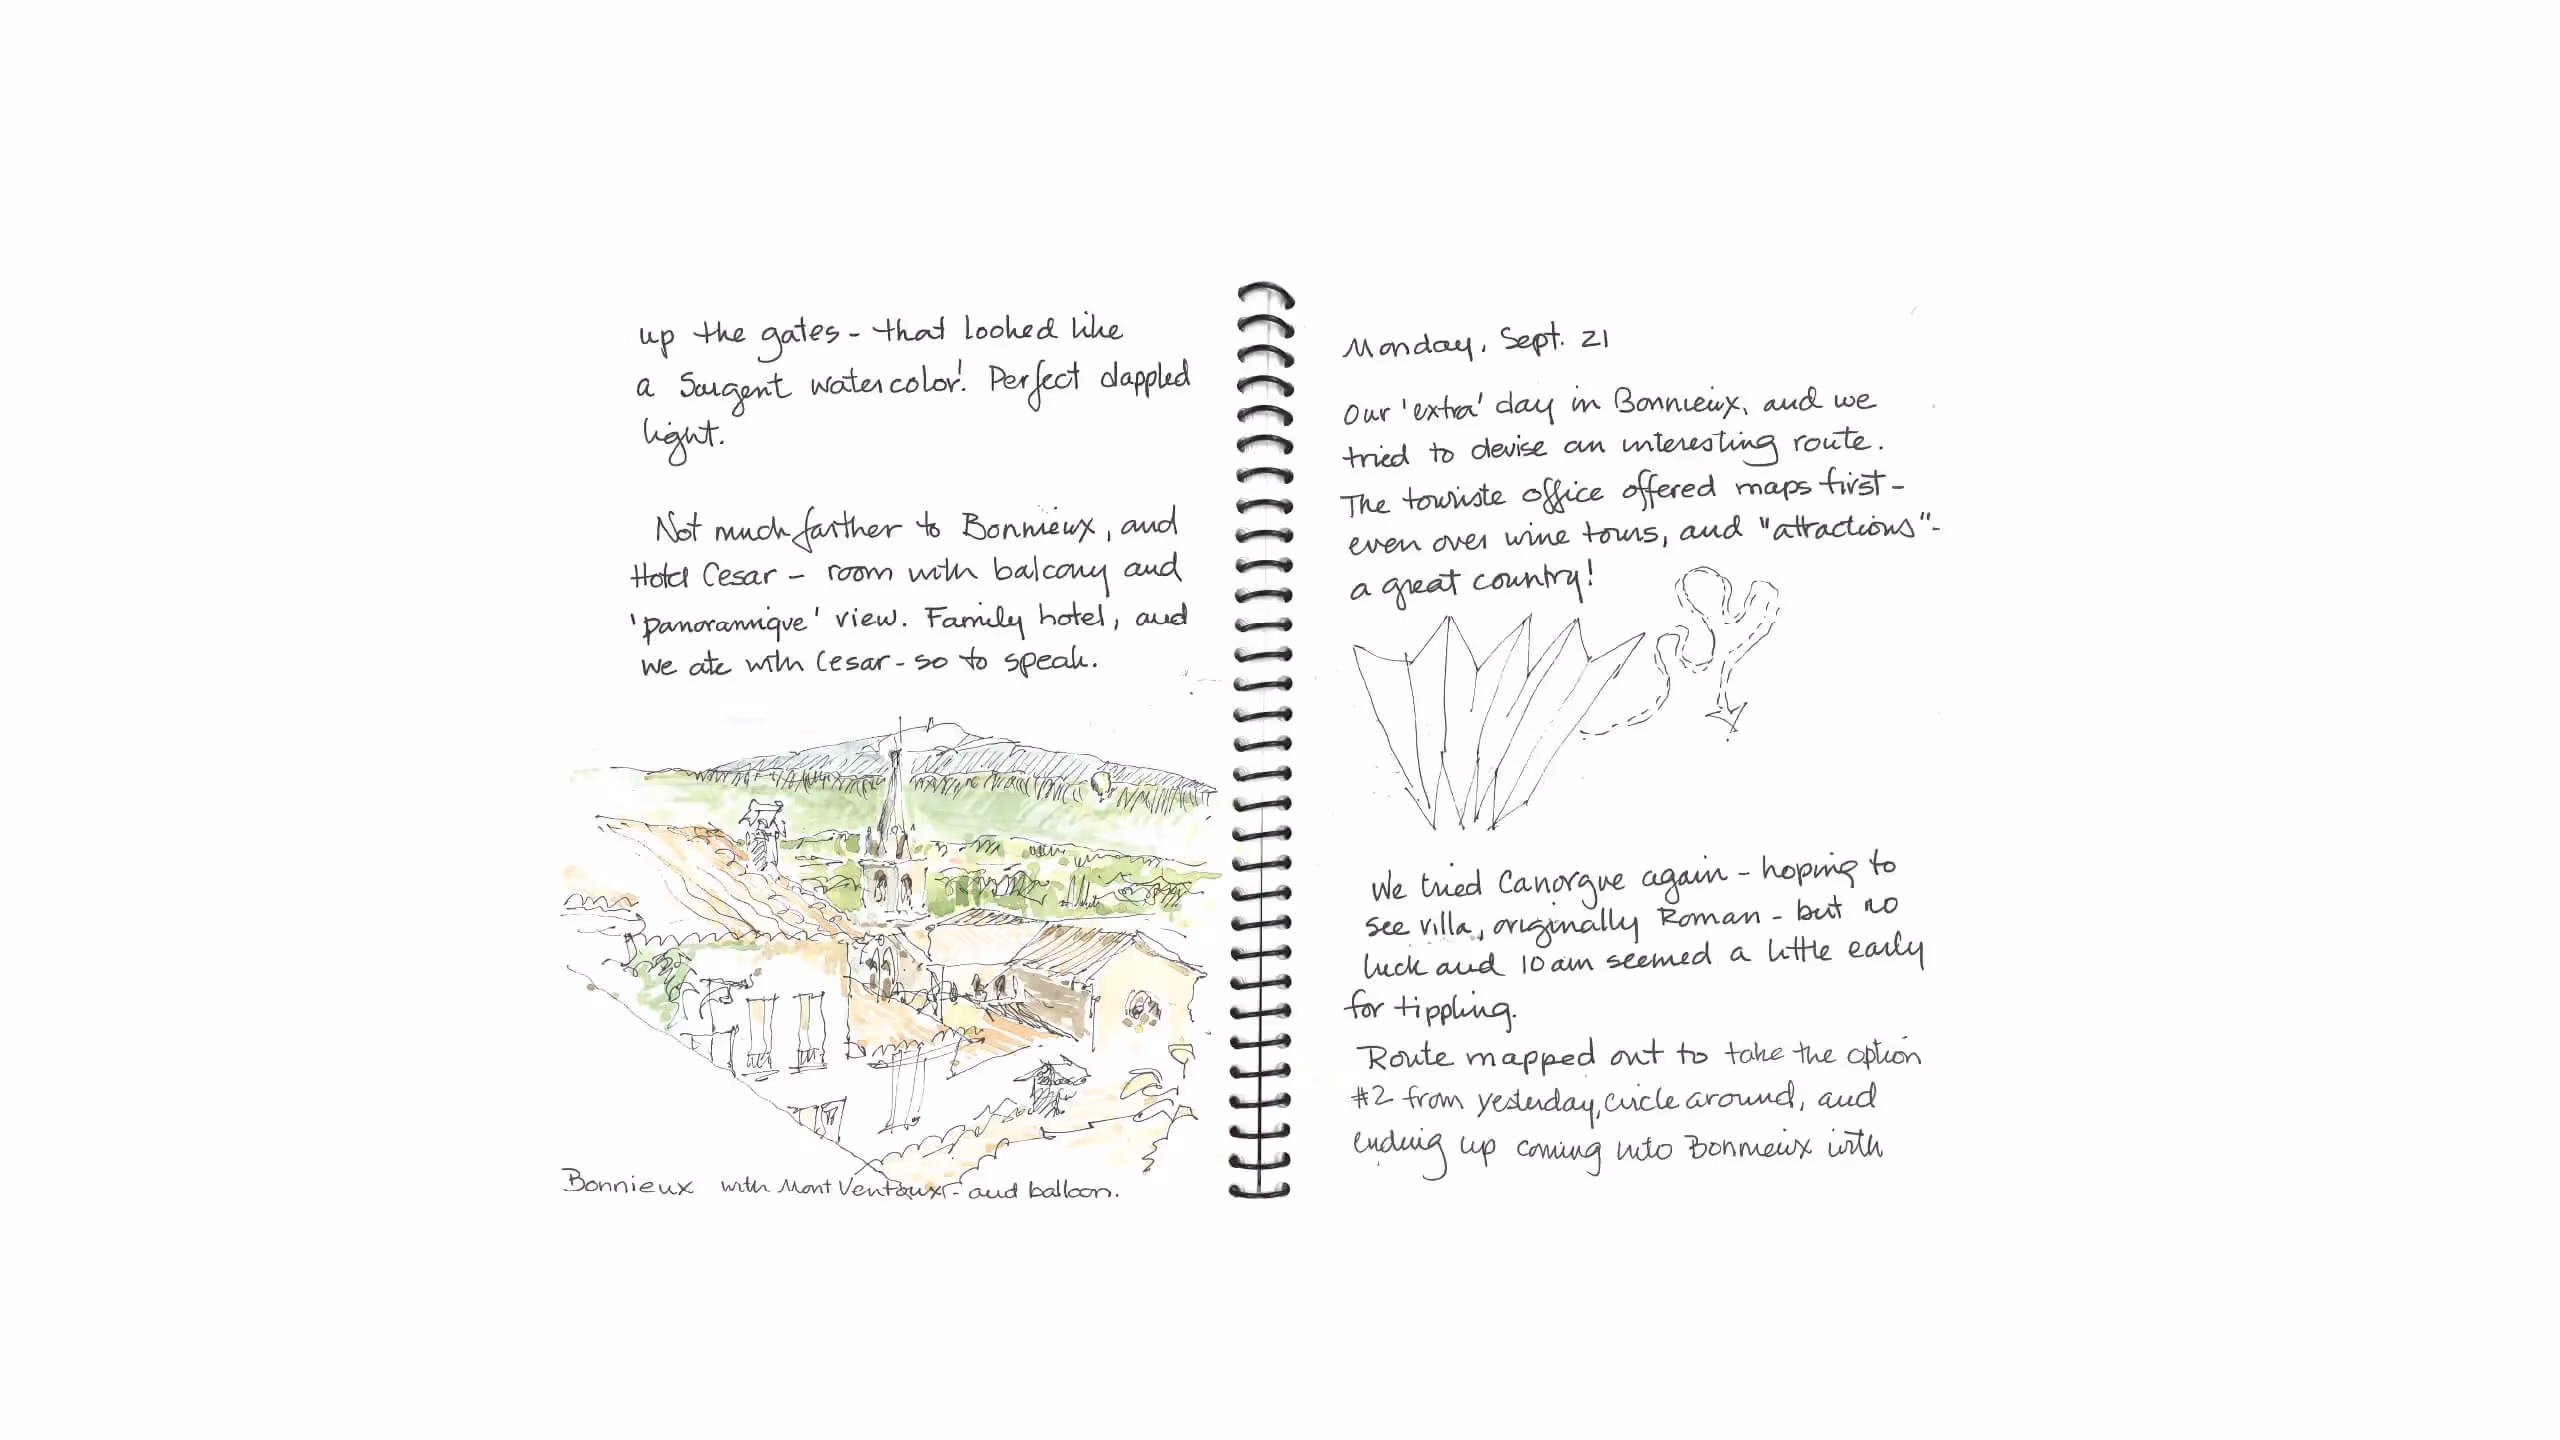 up the gates - that looked like
a Sargent watercolor! Perfect dappled
light.
Not much farther to Bonnieux, and
Hotel Cesar - room with balcony and
'panoramique' view. Family hotel, and
we ate with Cesar - so to speak.
Bonnieux with Mont Ventoux - and balloon.
Monday, Sept. 21
Our 'extra' day in Bonnieux, and we
tried to devise an interesting route.
The touriste office offered maps first -
even over wine tours, and "attractions" -
a great country!
We tried Canorgue again - hoping to
see villa, originally Roman - but no
luck and 10 am seemed a little early
for tippling.
Route mapped out to take the option
#2 from yesterday, circle around, and
ending up coming into Bonnieux with